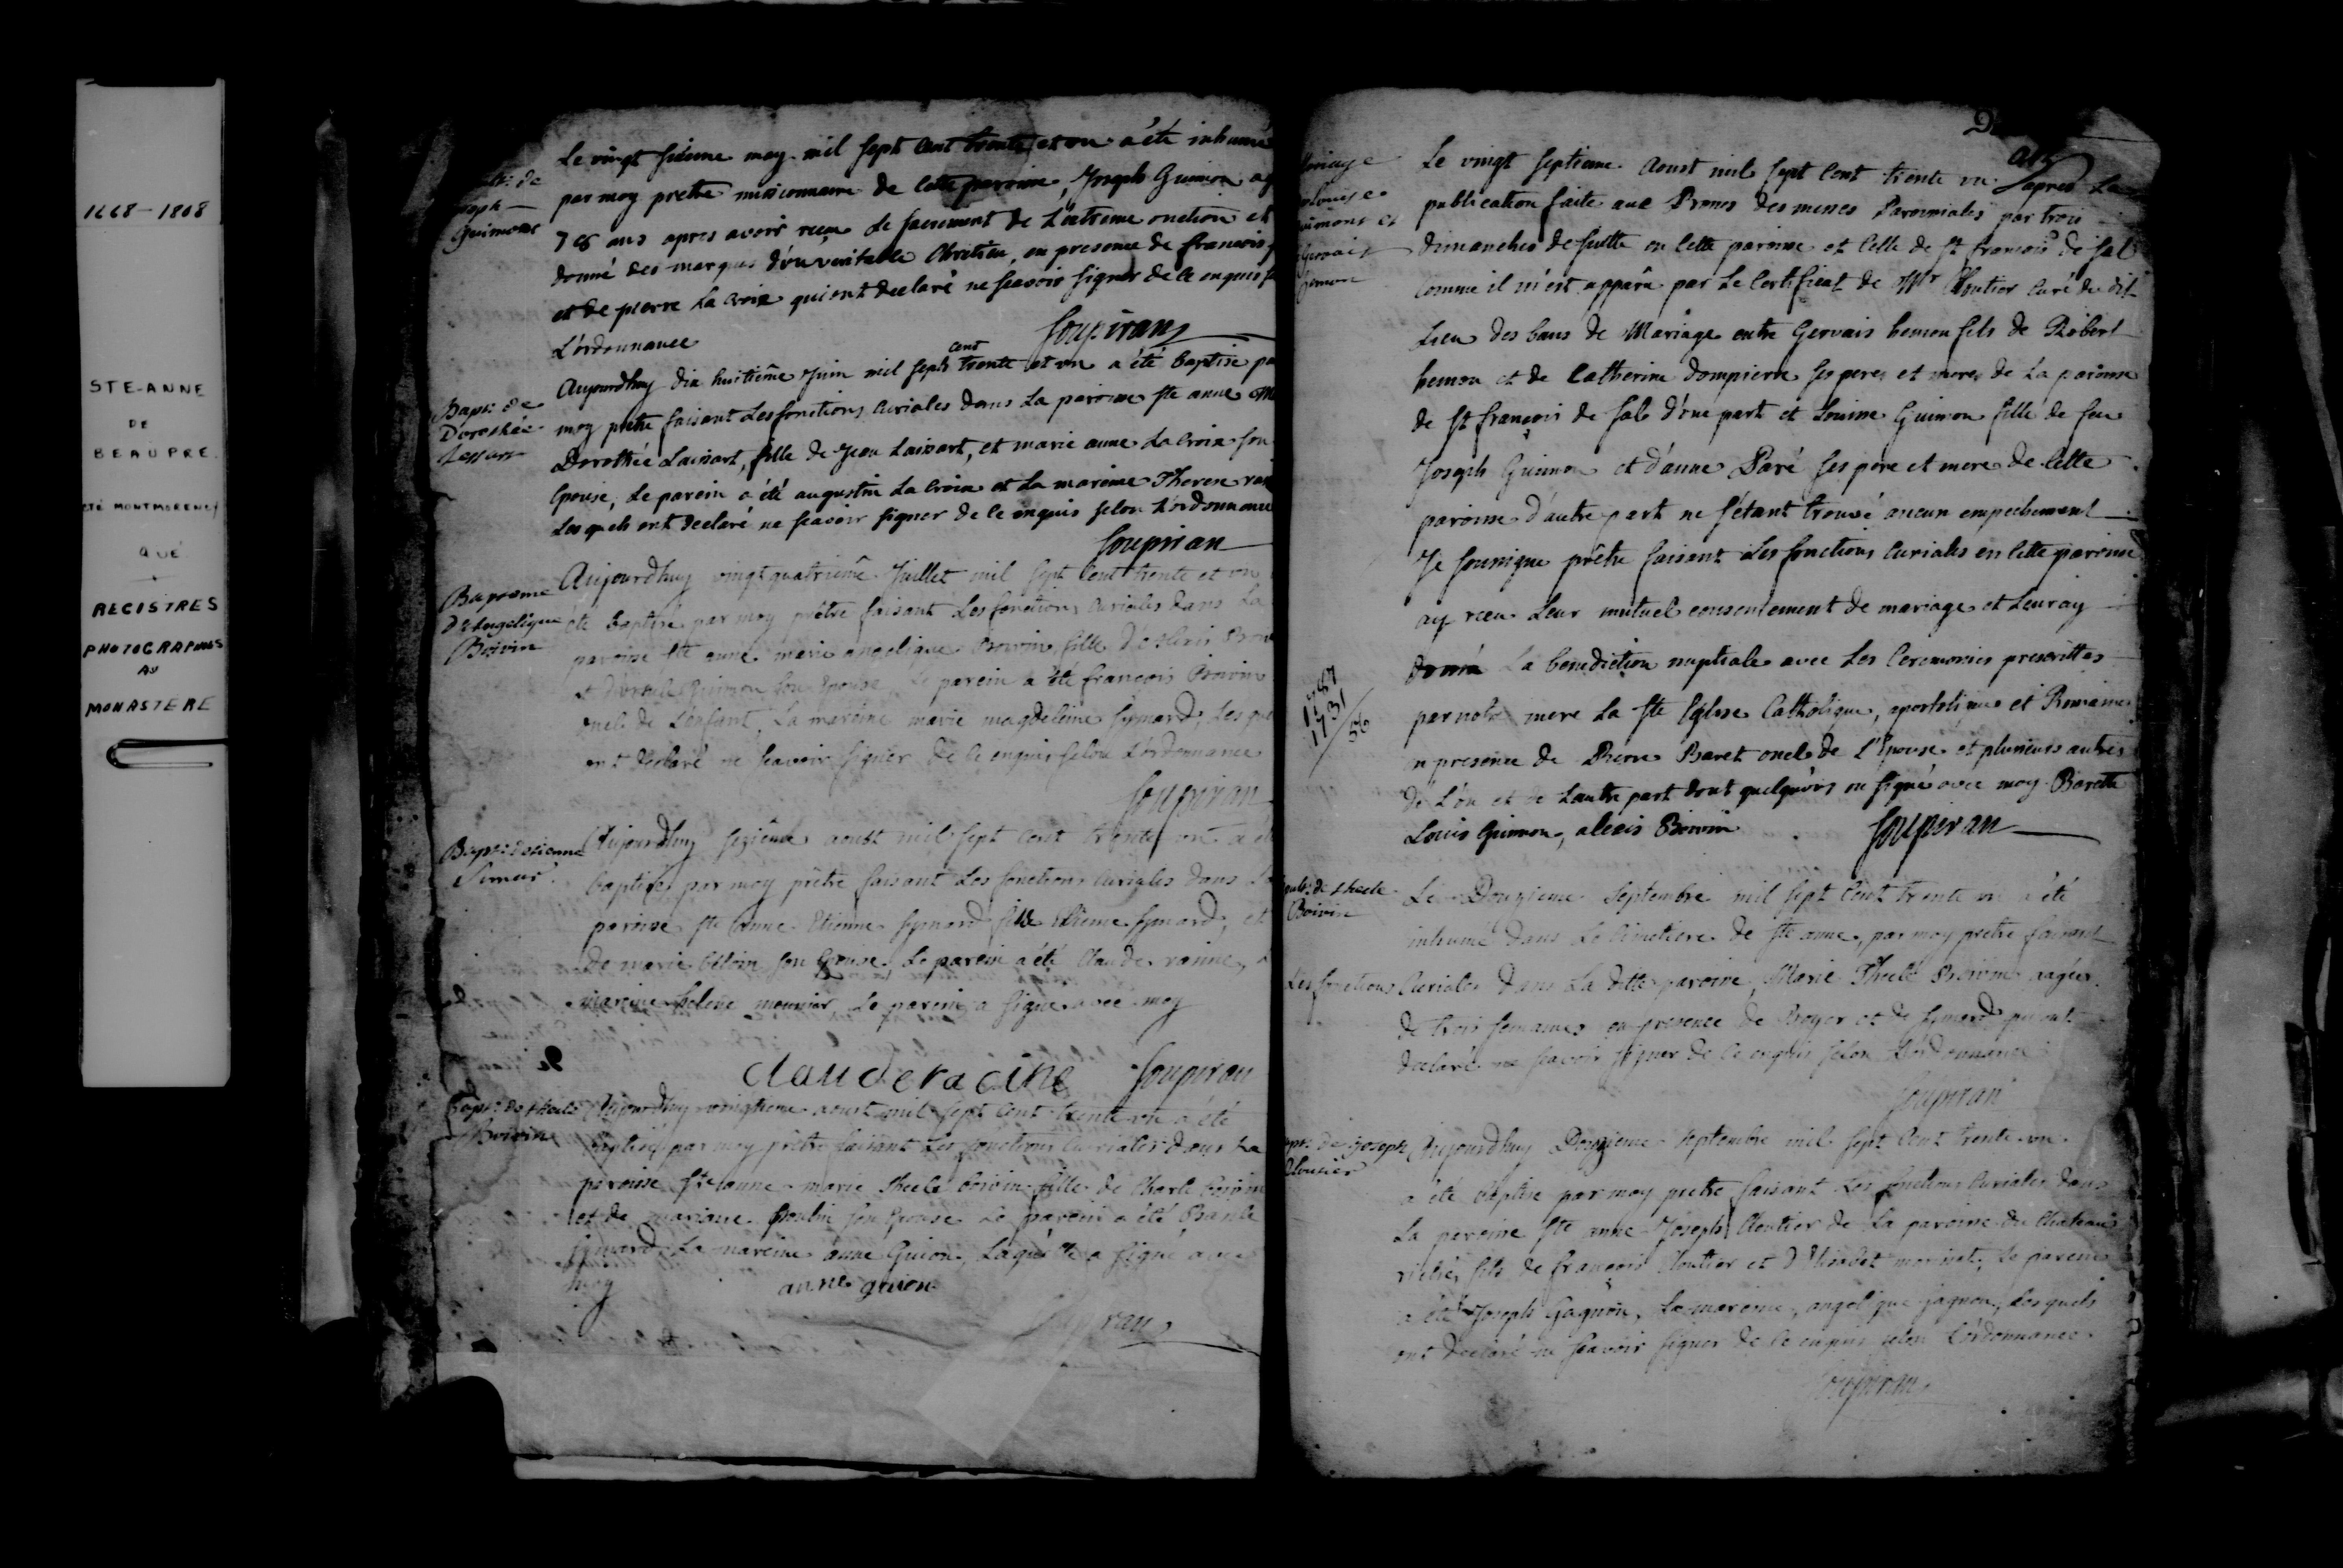 1668-1808
STE-ANNE
DE
BEAUPRE.
CTÉ MONTMORENCY
QUÉ
REGISTRES
PHOTOGRAPHIÉS
AU
MONASTERE
Guimont
Le vingt sixieme may mil sept cent trente et un a été inhumé
par moy pretre missionnaire de cette paroisse, Joseph Guimon
78 ans apres avoir reçu le sacrement de L'extreme onction et
donné des marques d'un veritable Chretien, en presence de francois
et de pierre La Croix qui ont declaré ne scavoir signer de ce enquis
L'ordonnance
Soupiran
Bapt: de
Dorothée
Lessart
Aujourdhuy dix huitiême Juin mil sept cent trente et un a été baptisé
moy prêtre faisant Les fonctions Curiales dans La paroisse ste anne
Dorothée Laissart, fille de Jean Laissart, et marie anne La Croix son
Epouse, Le parein a été augustin La Croix et La mareine Therese
Les quels ont declaré ne scavoir signer de ce enquis selon L'ordonnance
Soupiran
Bapteme
d'Angelique
Boivin
Aujourdhuy vingt quatriême Juillet mil sept cent trente et un
été baptisé par moy prêtre faisant Les fonctions Curiales dans La
paroisse Ste anne marie angelique Boivin, fille d'Alexis
et d'ursule Guimon son Epouse, Le parein a été françois Boivin
oncle de L'enfant, La mareine marie magdeleine Symard,
ont declaré ne scavoir signer de ce enquis selon L'ordonnance
Soupiran
Bapt: d'etienne
Simar.
Aujourdhuy seziême aoust mil sept cent trente un a été
baptisé par moy prêtre faisant Les fonctions Curiales dans
paroisse ste anne Etienne Symard fils d'Etienne Symard, et
de marie son Epouse. Le parein a été Claude
mareine helene meunier Le parein a signé avec moy
clauderacine Soupiran
Bapt: de thecle
Boivin
Aujourdhuy vingtieme aoust mil sept cent trente un a été
baptisé par moy prêtre faisant Les fonctions Curiales dans La
paroisse Ste anne marie thecle boivin fille de Charle boivin
et de mariane Poulin son Epouse Le parein a été Basile
Symard La mareine anne Guion, Laquelle a signé avec
moy anne guion
Soupiran
Mariage
Louise
Guimont et
Gervais
hemon
Le vingt septieme Aoust mil sept Cent trente un apres La
publication faite aux Prones des messes Paroissiales par trois
dimanches de suitte en cette paroisse et celle de St françois de sal
comme il m'est apparu par Le certificat de Mr Cloutier Curé du dit
Lieu des bans de Mariage entre Gervais hemon fils de Robert
hemon et de Catherine dompierre ses peres et meres de La paroisse
de St françois de sale d'une part et Louise Guimon fille de feu
Joseph Guimon et d'anne Paré ses pere et mere de cette
paroisse d'autre part ne s'étant trouvé aucun empechement
Je soussigné prêtre faisant Les fonctions Curiales en cette paroisse
ay reçu Leur mutuel consentement de mariage et Leur ay
donné La benediction nuptiale avec Les Ceremonies prescrittes
par notre mere La Ste Eglise Catholique, apostolique et Romaine
en presence de Pierre Baret oncle de L'Epouse et plusieurs autres
de L'un et de Lautre part dont quelqu'uns on signé avec moy Barette
Louis Guimon, alexis Boivin Soupiran
1787
1731
56
de thecle
Boivin
Le Douzieme Septembre mil sept Cent trente un a été
inhumé dans Le Cimetiere de Ste anne, par moy pretre faisant
Les fonctions Curiales dans La ditte paroisse, Marie Thecle Boivin aagée
de trois semaines en presence de Royer et de Symard qui ont
declaré ne scavoir signer de ce enquis selon L'ordonnance
Soupiran
de Joseph
Cloutier
Aujourdhuy Douzieme septembre mil sept Cent trente un
a été baptisé par moy pretre faisant Les fonctions Curiales dans
La paroisse Ste anne Joseph Cloutier de La paroisse du Chateau
riché, fils de françois Cloutier et d'Elisabet Le parein
a été Joseph Gagnon, La mareine, angelique gagnon, Les quels
ont declaré ne scavoir signer de ce enquis selon L'ordonnance.
Soupiran